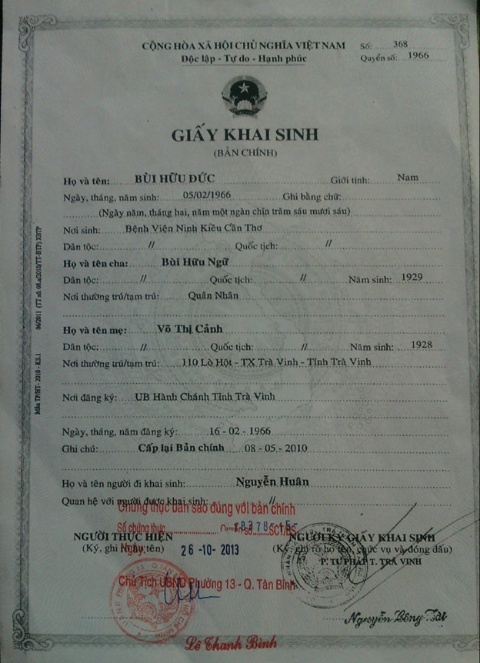 CỘNG HÒA XÃ HỘI CHỦ NGHĨA VIỆT NAM
Độc lập - Tự do - Hạnh phúc
Số: 368
Quyển số: 1966
GIẤY KHAI SINH
(BẢN CHÍNH)
Họ và tên: BÙI HỮU ĐỨC Giới tính: Nam
Ngày, tháng, năm sinh: 05/02/1966 Ghi bằng chữ:
(Ngày năm, tháng hai, năm một ngàn chín trăm sáu mươi sáu)
Nơi sinh: Bệnh Viện Ninh Kiều Cần Thơ
Dân tộc: // Quốc tịch: //
Họ và tên cha: Bùi Hữu Ngữ
Dân tộc: // Quốc tịch: // Năm sinh: 1929
Nơi thường trú/tạm trú: Quân Nhân
Họ và tên mẹ: Võ Thị Cảnh
Dân tộc: // Quốc tịch: // Năm sinh: 1928
Nơi thường trú/tạm trú: 110 Lò Hột - TX Trà Vinh - Tỉnh Trà Vinh
Nơi đăng ký: UB Hành Chánh Tỉnh Trà Vinh
Ngày, tháng, năm đăng ký: 16 - 02 - 1966
Ghi chú: Cấp lại Bản chính 08 - 05 - 2010
Họ và tên người đi khai sinh: Nguyễn Huân
Quan hệ với người được khai sinh: //
Chứng thực bản sao đúng với bản chính
Số chứng thực
NGƯỜI THỰC HIỆN
(Ký, ghi rõ họ tên)
Ngày 26 -10- 2013
NGƯỜI KÝ GIẤY KHAI SINH
(Ký, ghi rõ họ tên, chức vụ và đóng dấu)
P. TƯ PHÁP T. TRÀ VINH
Chủ Tịch UBND Phường 13 - Q. Tân Bình
Lê Thanh Bình